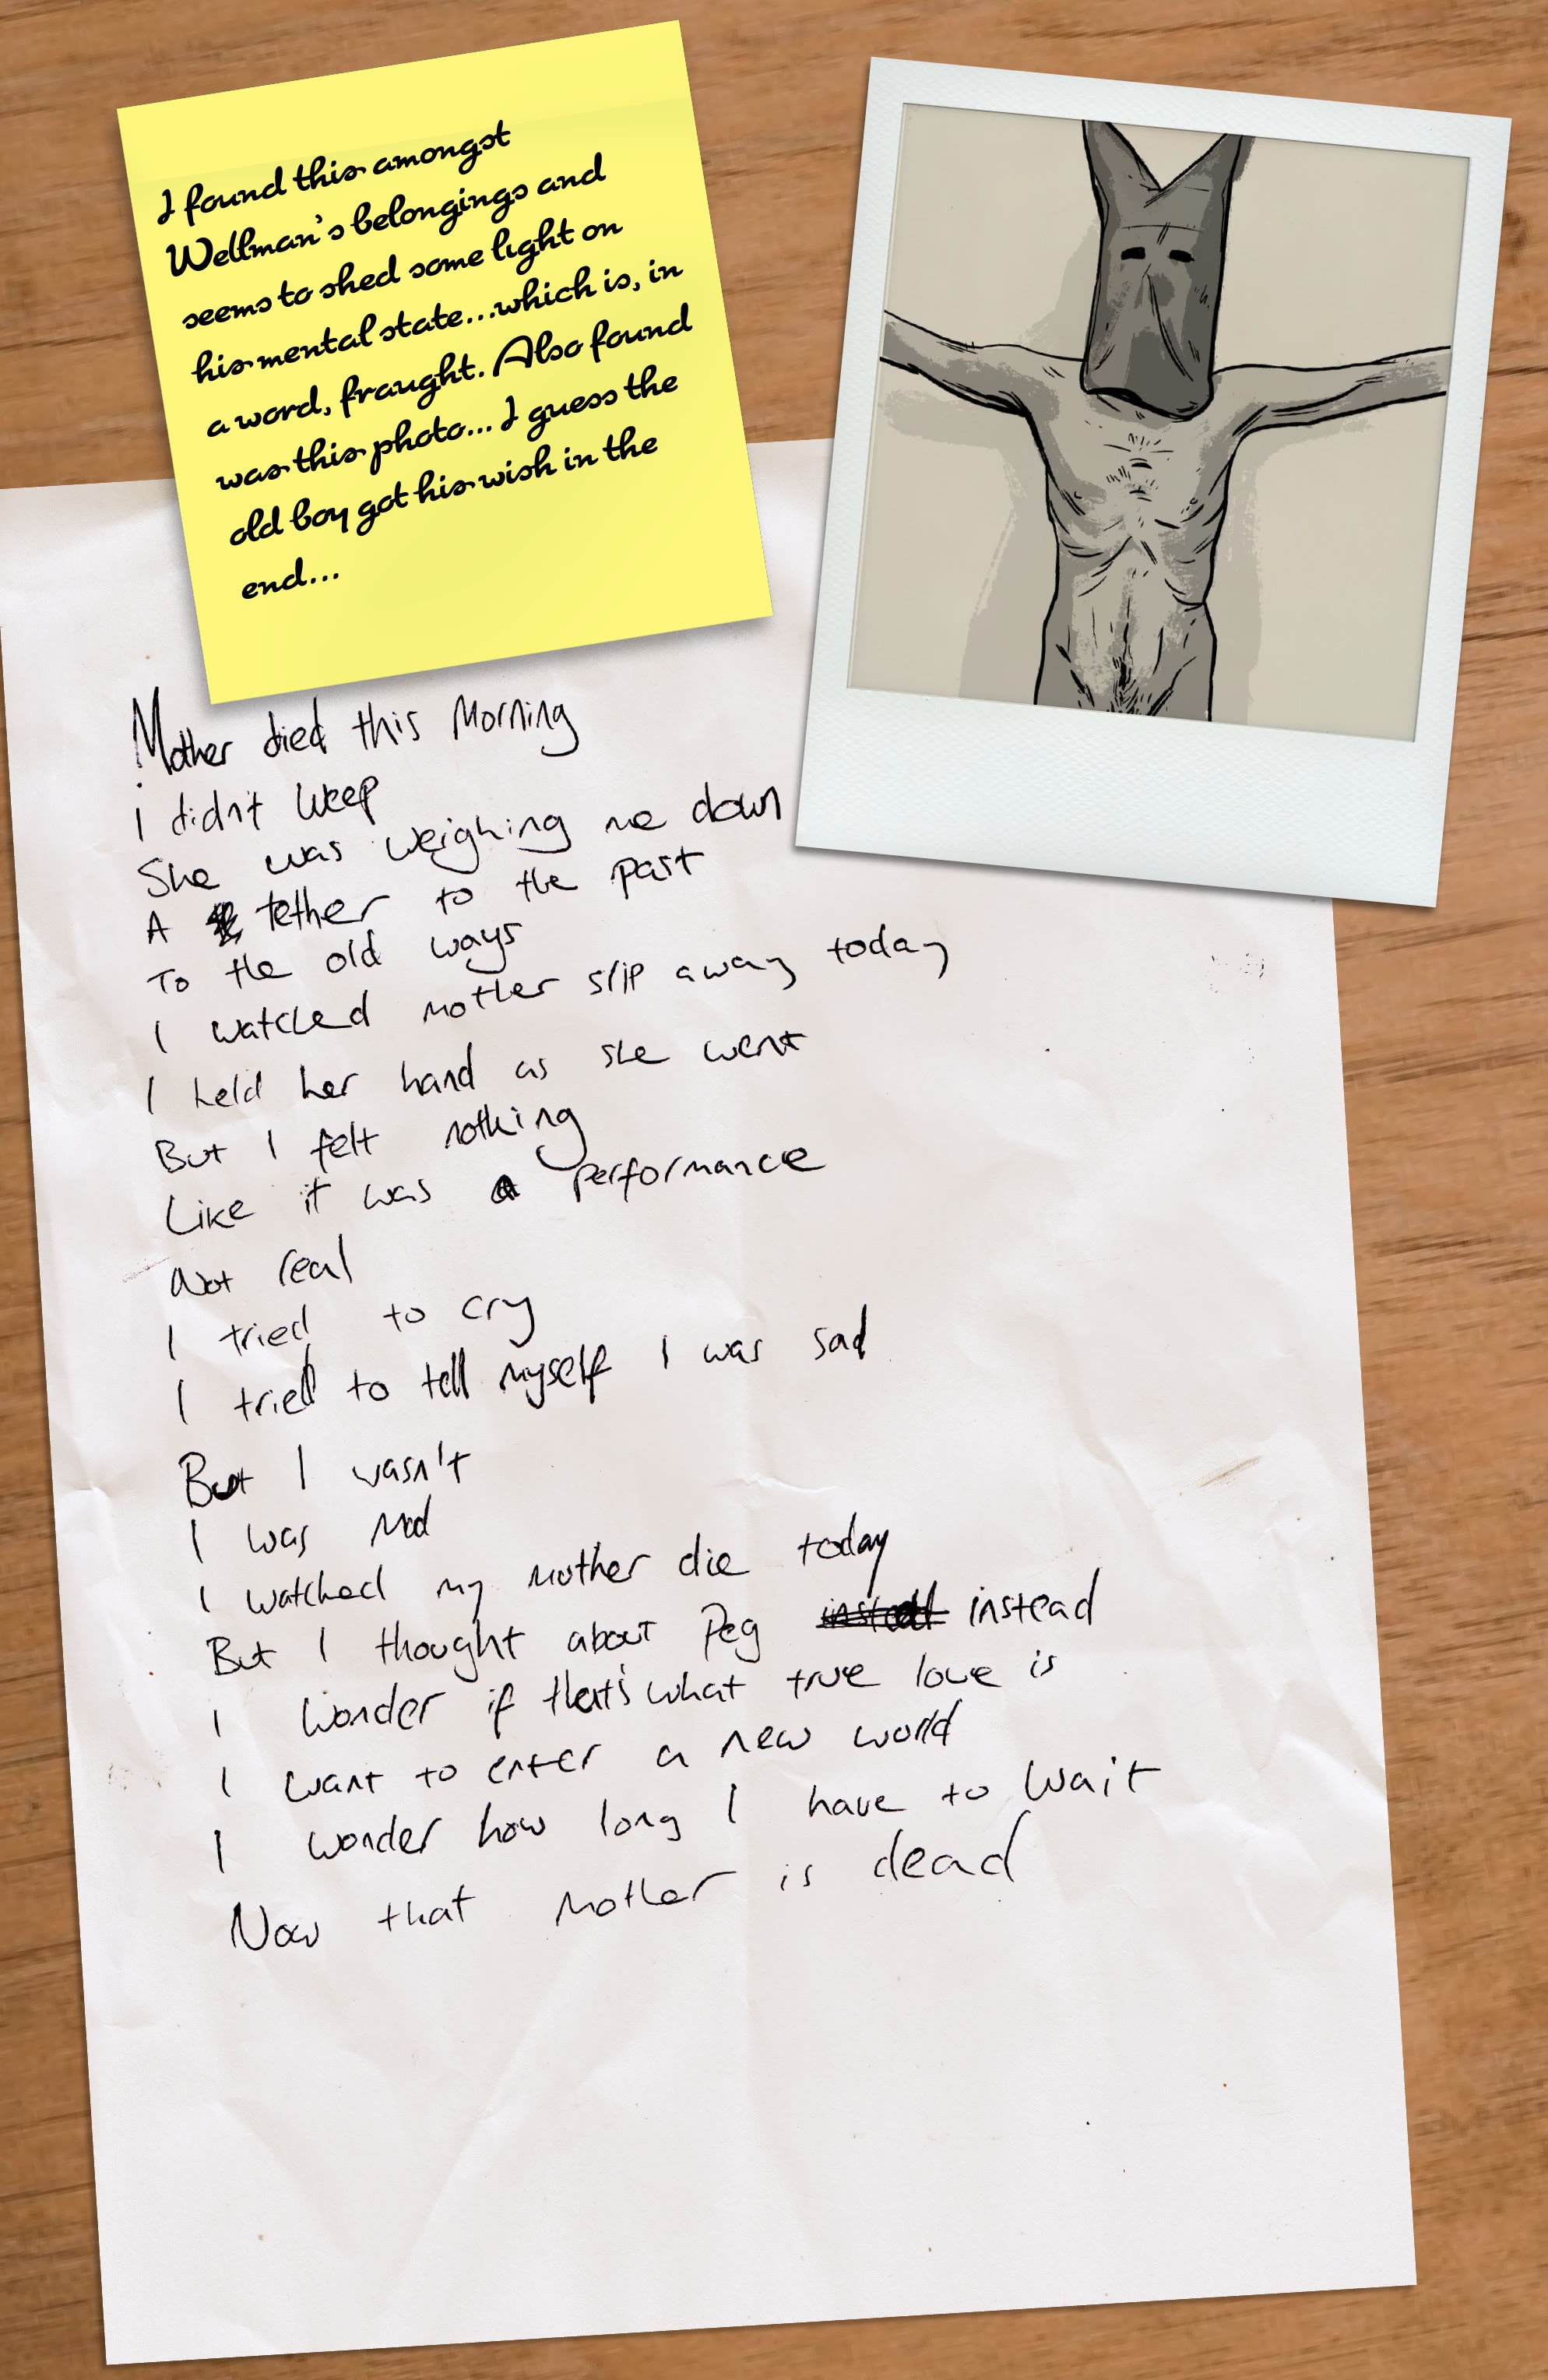 I found this amongst
Wellman's belongings and
seems to shed some light on
his mental state...which is, in
a word, fraught. Also found
was this photo... I guess the
old boy got his wish in the
end...
Mother died this Morning
I didn't weep
She was weighing me down
A tether to the past
To the old ways
I watched mother slip away today
I held her hand as she went
But I felt nothing
Like it was a performance
Not real
I tried to cry
I tried to tell myself I was sad
But I wasn't
I was Mad
I watched my mother die today
But I thought about Peg instead instead
I wonder if that's what true love is
I want to enter a new world
I wonder how long I have to wait
Now that Mother is dead